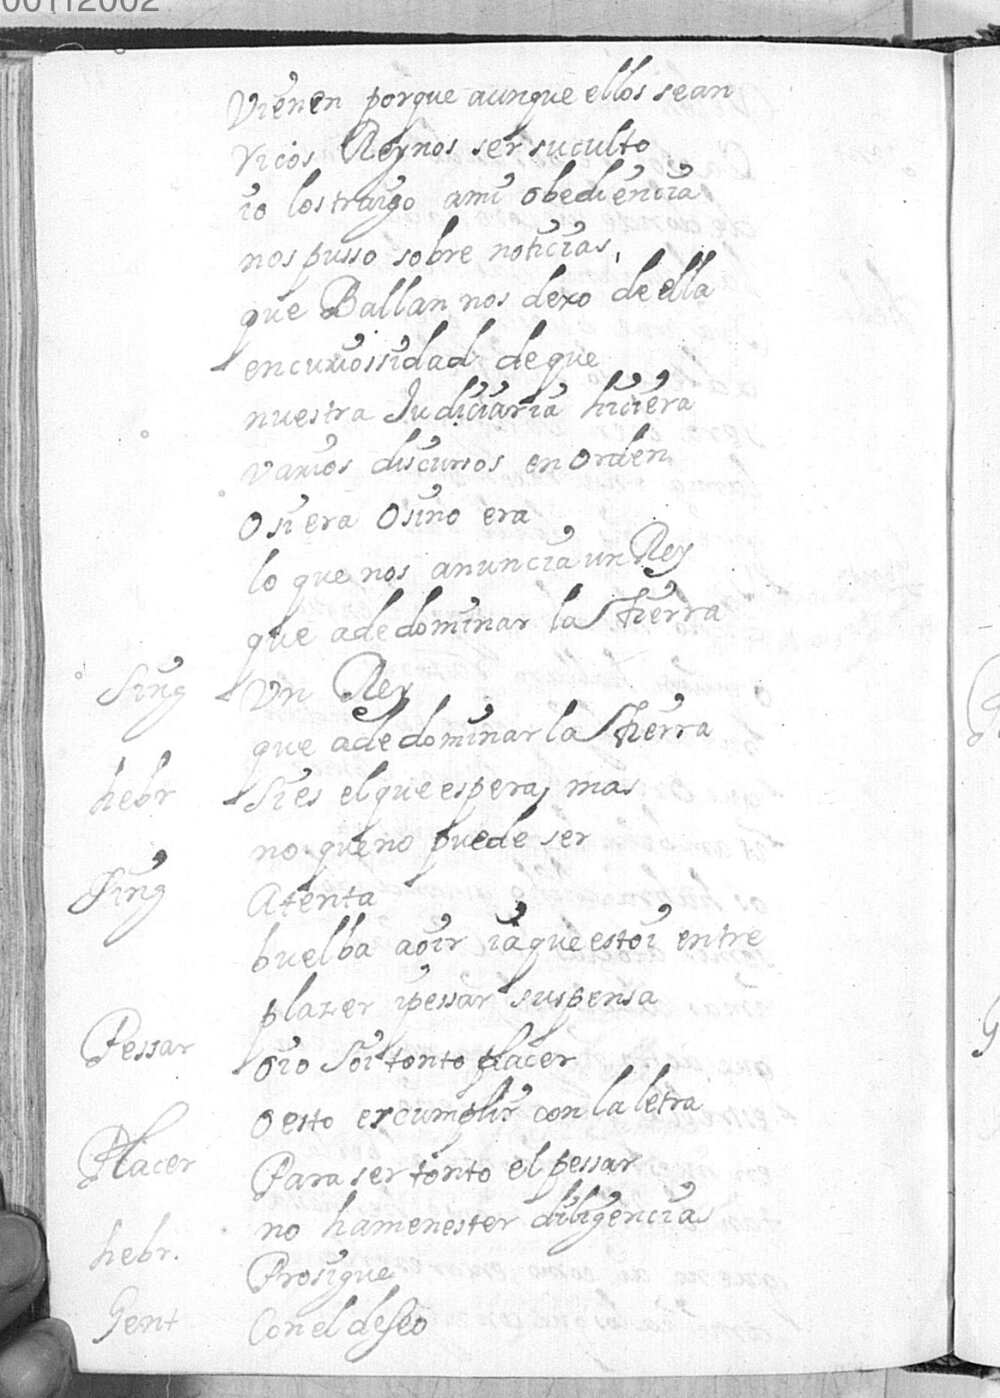 00112002
Vienen porque aunque ellos sean
Vicos Reynos ser suculto
io lostraigo ami obediencia
nos pusso sobre noticias,
que Ballan nos dexo de ella
encuriossidad de que
nuestra Judiciaria hiciera
varios discursos en orden
O si era O sino era
lo que nos anuncia un Rey
que adedominar la Tierra
Sing Un Rey
que adedominar la Tierra
hebr Sies elque espera, mas
no queno puede ser
Sing Atenta
buelba aoir ia que estoi entre
plazer ipessar suspensa
Pessar Oio soi tonto placer
O esto es cumplir con la letra
Placer Para ser tonto el pessar
no hamenester diligencias
hebr. Prosigue
Gent Con el deseo